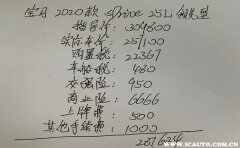 宝马 2020款 sDrive 25Li 领先型
指导价: 309800
实际车价: 251100
购置税: 22367
车船税: 480
交强险: 950
商业险: 6666
上牌费: 500
其他手续费: 1000
www.scauto.com.cn